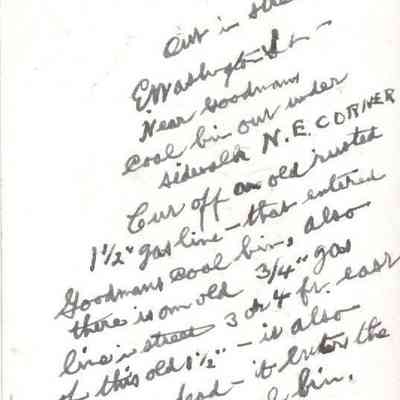 Out in stre
E Washington St -
Near Goodmans
Coal bin out under
sidewalk N.E. CORNER
Cut off an old rusted
1 1/2" gas line - that entered
Goodmans Coal bin, also
there is an old 3/4" gas
line in street 3 or 4 ft. east
of this old 1 1/2" - is also
dead - it enters the
bin.